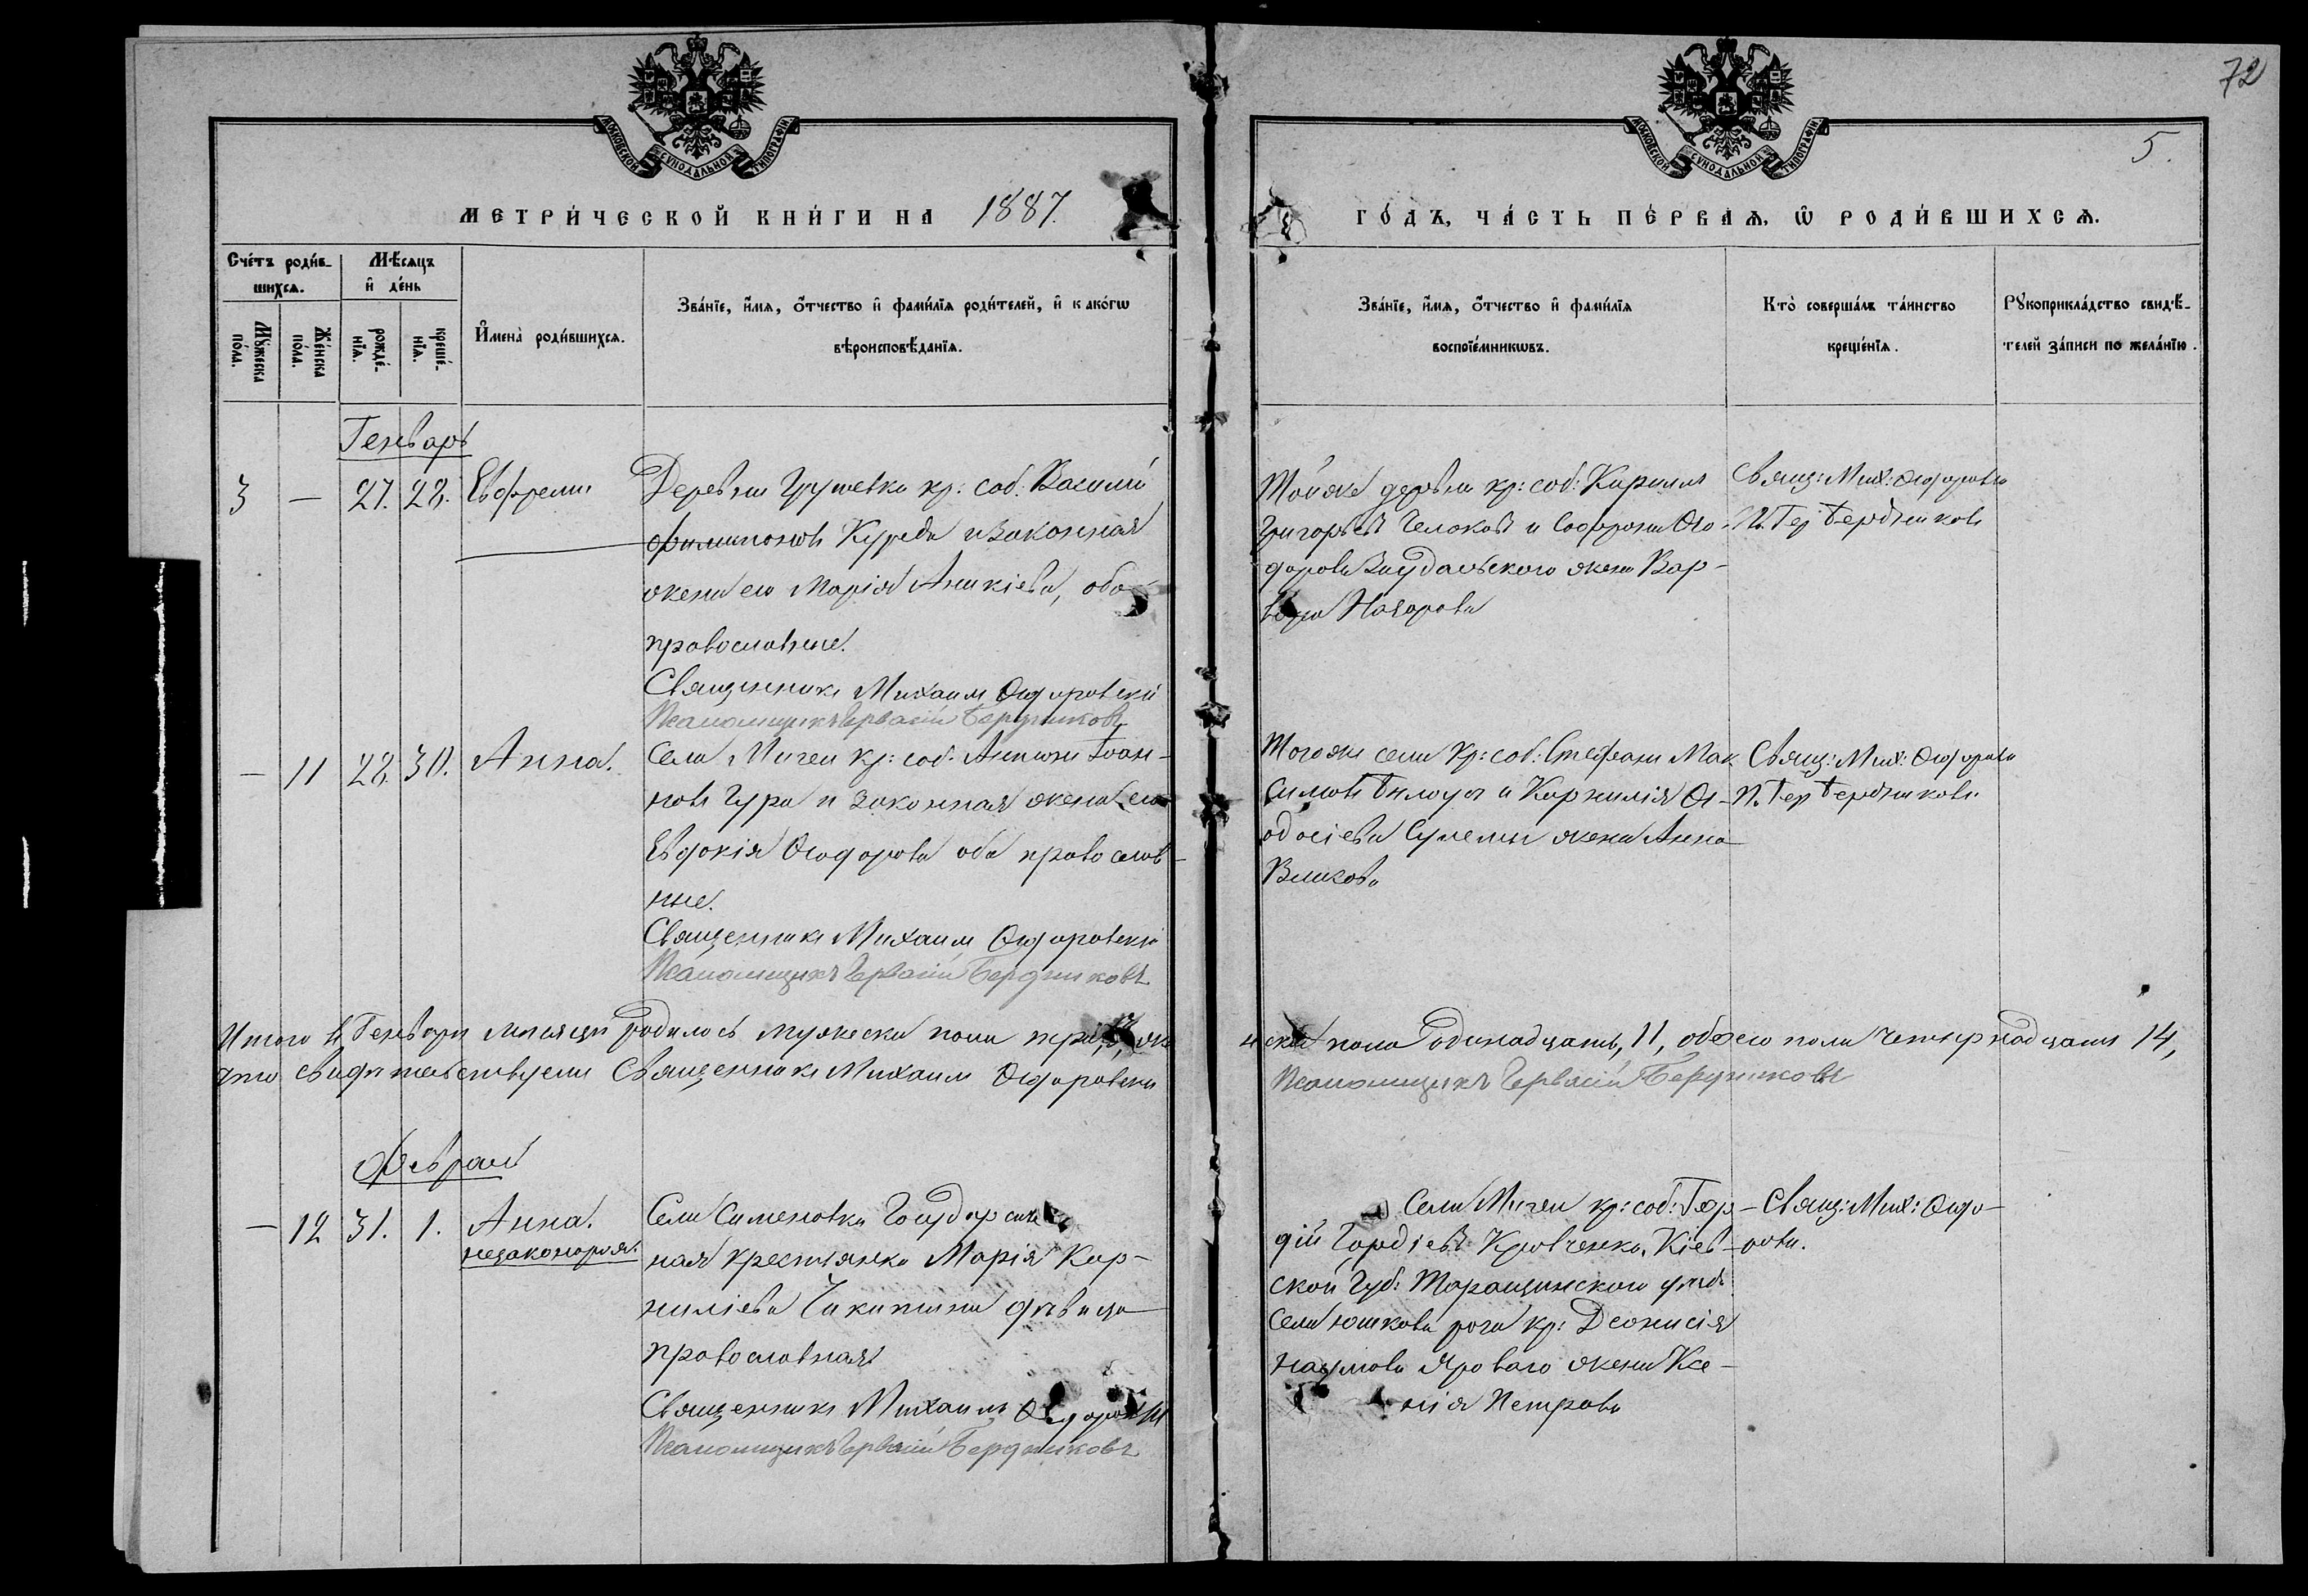 72
5.
МОСКОВСКОЙ СѴНОДАЛЬНОЙ ТИПОГРАФІИ
МОСКОВСКОЙ СѴНОДАЛЬНОЙ ТИПОГРАФІИ
МЕТРИ́ЧЕСКОЙ КНИ́ГИ НА 1887.
ГО́ДЪ, ЧА́СТЬ ПЕ́РВАѦ, Ѡ҆ РОДИ́ВШИХСѦ.
Сче́тъ роди́в-
шихсѧ.
Мꙋ́жеска по́ла.
Же́нска по́ла.
Мѣ́сѧцъ
и҆ де́нь
рожде́-нїѧ.
креще́-нїѧ.
И҆мена̀ роди́вшихсѧ.
Зва́нїе, и҆́мѧ, ѻ҆́тчество и҆ фами́лїѧ роди́телей, и҆ како́гѡ
вѣроисповѣ́данїѧ.
Зва́нїе, и҆́мѧ, ѻ҆́тчество и҆ фами́лїѧ
воспрїе́мникѡвъ.
Кто̀ соверша́лъ та́инство
креще́нїѧ.
Рꙋкоприкла́дство свидѣ́-
телей за́писи по жела́нїю.
Генварь
3 — 27. 28. Евфрем
Деревни Грушевки кр: соб: Василий
Филимонов Куреда и законная
жена его Марія Аникіева, оба
православные.
Священникъ Михаилъ Ѳедоровскій
Псаломщикъ Гервасій Бердниковъ
Той же деревни кр: соб: Кирилл
Григорьев Челоков и Софрона Ѳео-
дорова жена Вар-
вара Назарова
Свящ: Мих: Ѳедоровск
П. Гер Бердников
— 11 28. 30. Анна.
Села Мигеи кр: соб: Антон Іоан-
нов Гура и законная жена его
Евдокія Ѳеодорова оба православ-
ные.
Священникъ Михаилъ Ѳедоровскій
Псаломщикъ Гервасій Бердниковъ
Того же села кр: соб: Стефан Мак
симов Билоус и Корнилія Ѳе-
одосіева Сулемы жена Анна
Свящ: Мих: Ѳедоровск
П. Гер Бердников
Итого в Генваре месяце родилось мужеска пола три, 3, же
нска пола одинадцать, 11, обоего пола четырнадцать 14,
что свидетельствуем Священник Михаил Ѳедоровскій
Псаломщикъ Гервасій Бердниковъ
Февраль
— 12 31. 1. Анна.
незаконорож.
Села Сименовки Государствен
ная крестьянка Марія Кор-
ниліева девица
православная
Священникъ Михаилъ Ѳедоровскій
Псаломщикъ Гервасій Бердниковъ
Села Мигеи кр: соб: Гор-
дій Гордіевъ Кравченко, Кіев-
ской Губ: Таращинского уезда
села Юшкова рога кр: Деонисія
Наумова Яроваго жена Ксе-
нія Петрова
Свящ: Мих: Ѳедо-
ровск.